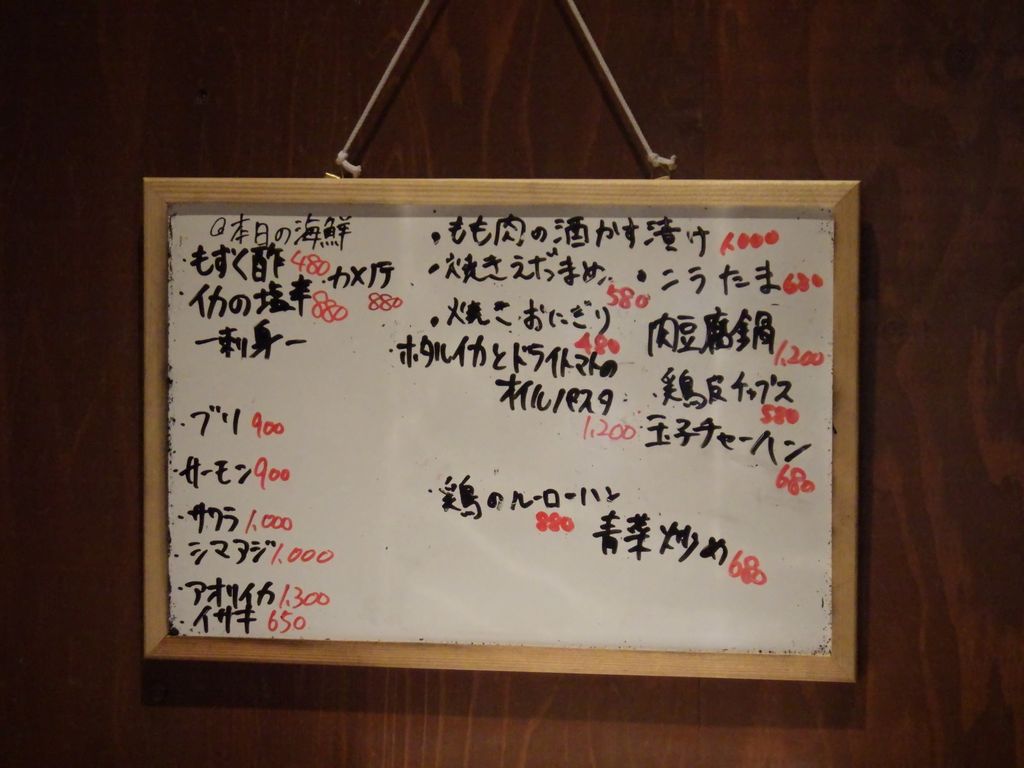 @本日の海鮮
・もずく酢 480
・カメノテ 880
・イカの塩辛 880
ー刺身ー
・ブリ 900
・サーモン 900
・サワラ 1,000
・シマアジ 1,000
・アオリイカ 1,300
・イサキ 650
・もも肉の酒かす漬け 1,000
・焼きえだまめ 580
・ニラたま 680
・焼きおにぎり 480
肉豆腐鍋 1,200
ホタルイカとドライトマトの
オイルパスタ 1,200
・鶏皮チップス 580
・玉子チャーハン 680
・鶏のルーローハン 880
青菜炒め 680